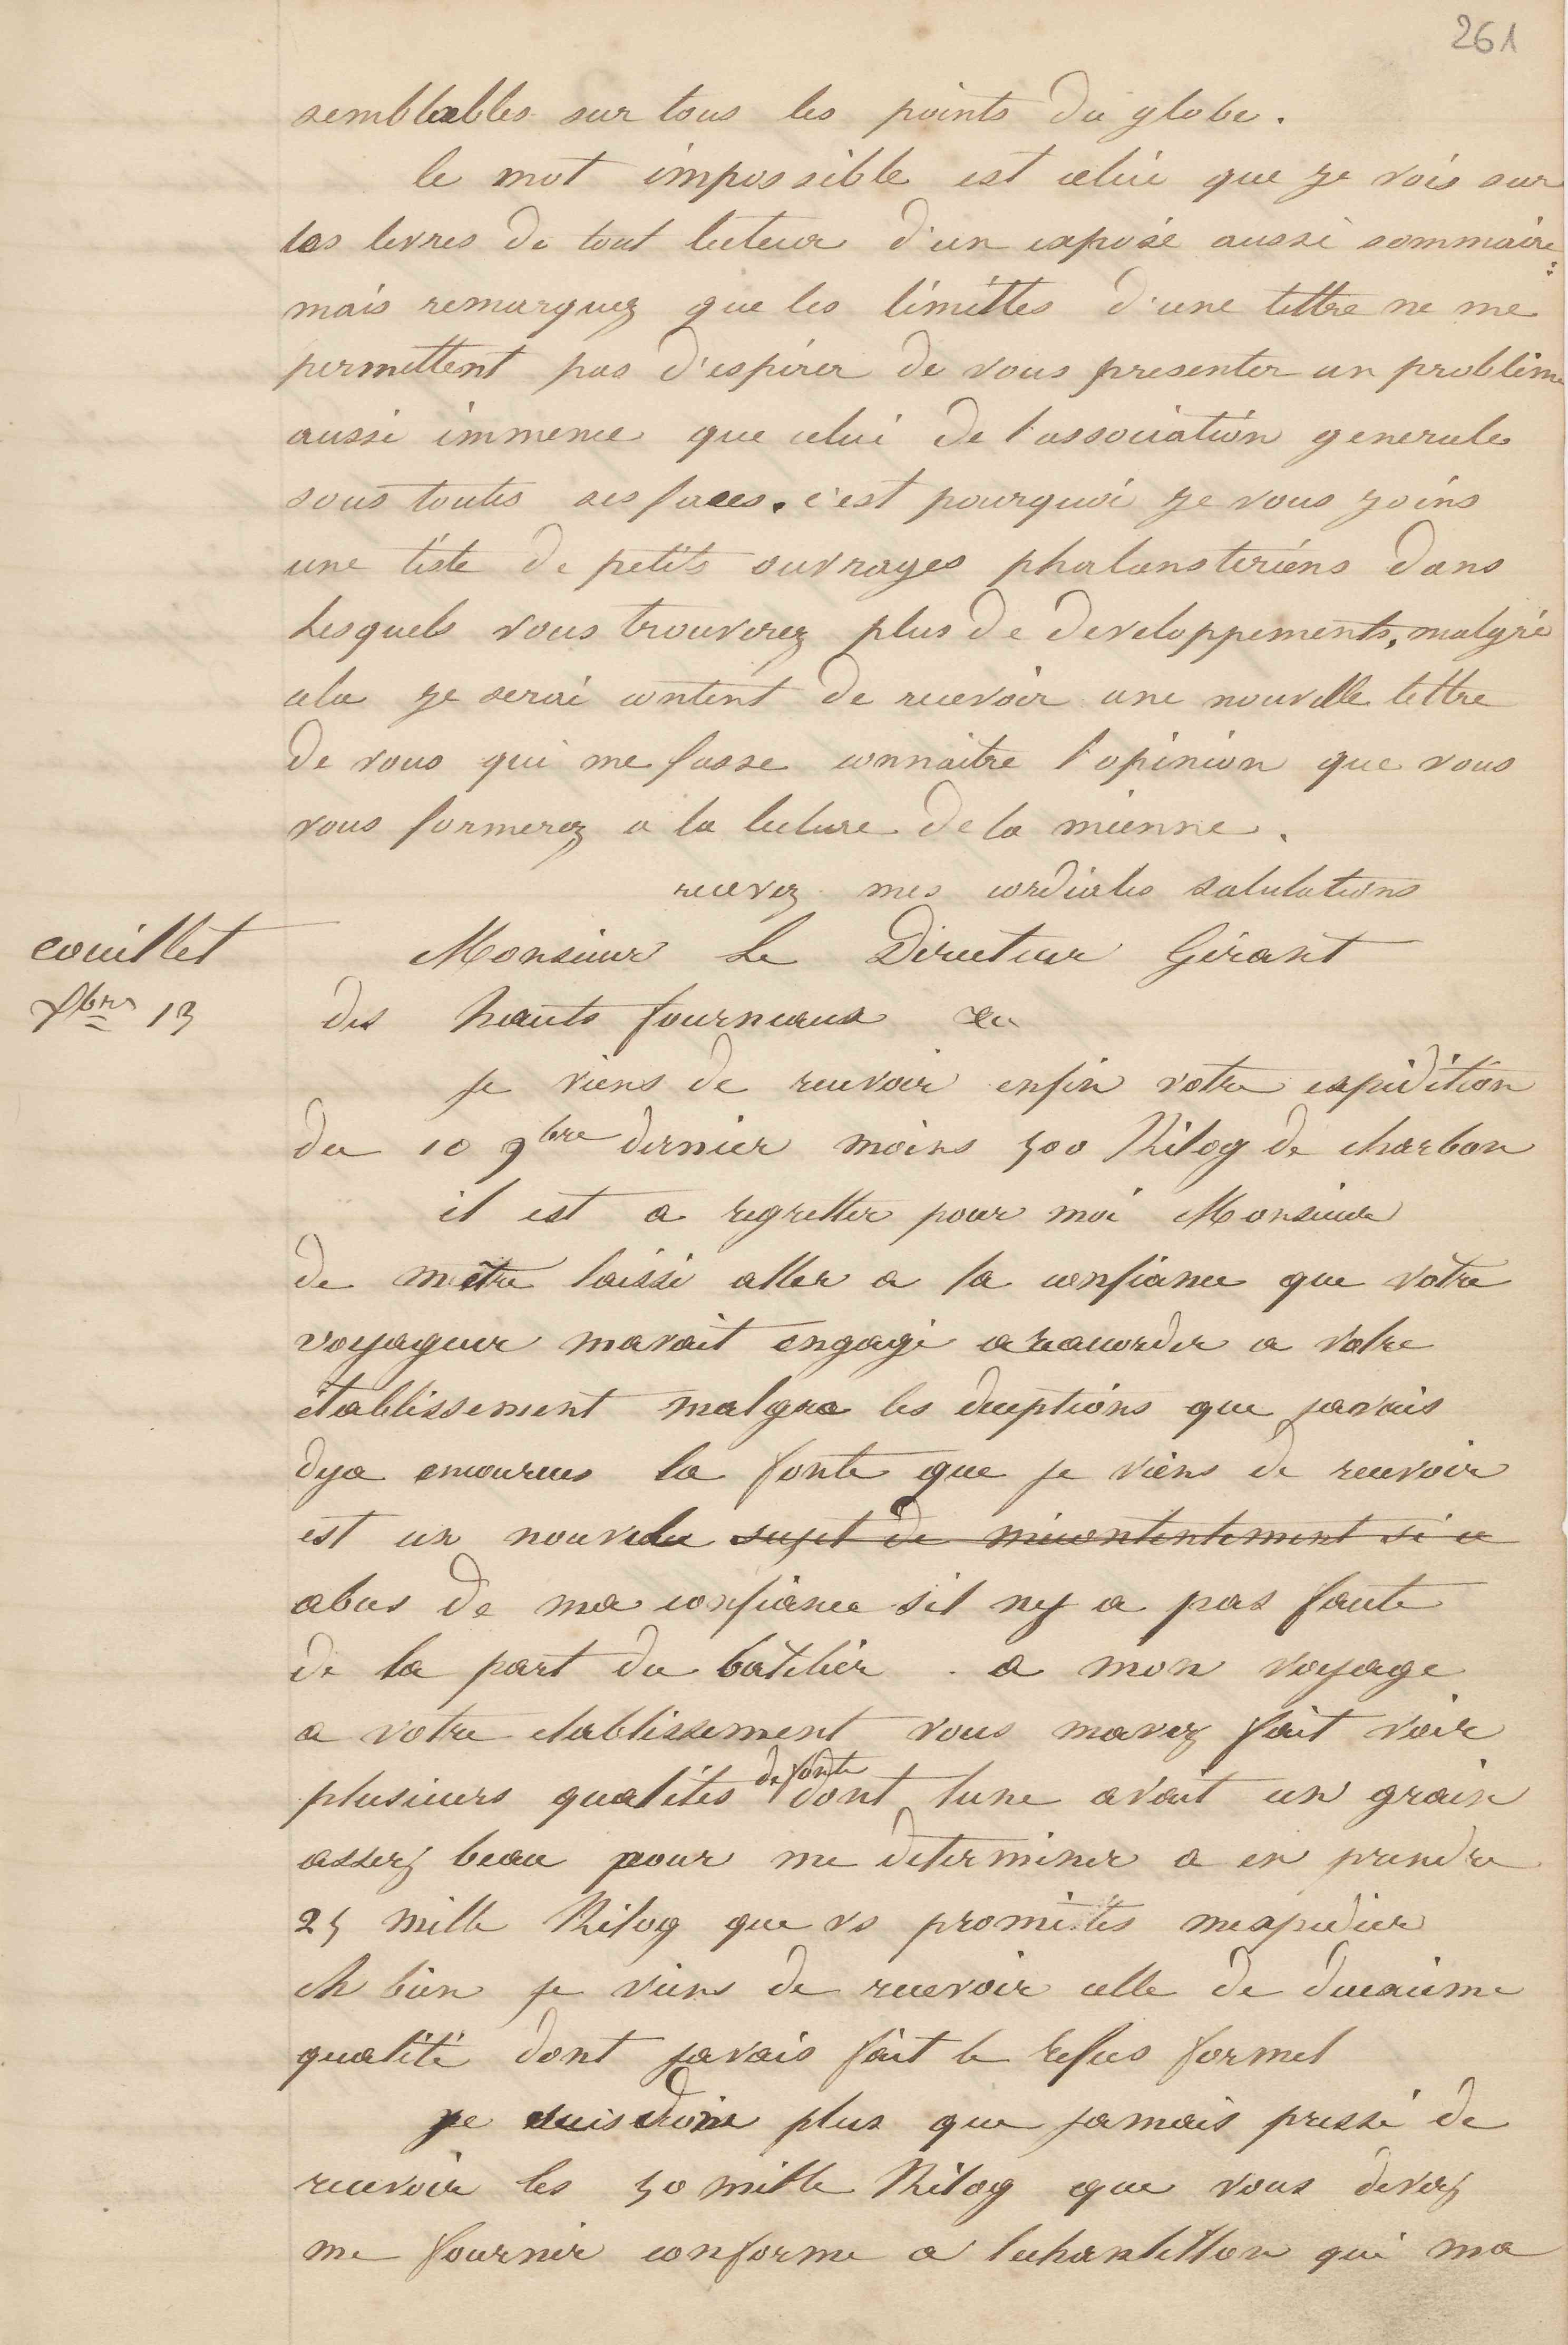 261
semblables sur tous les points du globe.
le mot impossible est celui que je vois sur
les levres de tout lecteur d'un exposé aussi sommaire:
mais remarquez que les limittes d'une lettre ne me
permettent pas d'espérer de vous presenter un problême
aussi immence que celui de l'association generale
sous toutes ses faces. c'est pourquoi je vous joins
une liste de petits ouvrages phalansteriens dans
lesquels vous trouverez plus de developpements, malgré
cela je serai content de recevoir une nouvelle lettre
de vous qui me fasse connaitre l'opinion que vous
vous formerez a la lecture de la mienne.
recevez mes cordiales salutations
couillet
Monsieur Le Directeur Gérant
bre 13
des hauts fourneaux
je viens de recevoir enfin votre expédition
du 10 9bre dernier moins 500 Kilog de charbon
il est a regretter pour moi Monsieur
de mètre laissé aller a la confiance que votre
voyageur mavait engagé a raccorder a votre
établissement malgré les deceptions que javais
deja encourues la fonte que je viens de recevoir
est un nouvel sujet de mécontentement si ce
abus de ma confiance sil ny a pas faute
de la part du batelier. a mon voyage
a votre etablissement vous mavez fait voir
plusieurs qualités de fonte dont lune avait un grain
assez beau pour me determiner a en prendre
25 mille Kilog que vs promites mexpedier
eh bien je viens de recevoir celle de deuxieme
qualité dont javais fait le refus formel
je suis donc plus que jamais pressé de
recevoir les 50 mille Kilog que vous devez
me fournir conforme a lechantillon qui ma